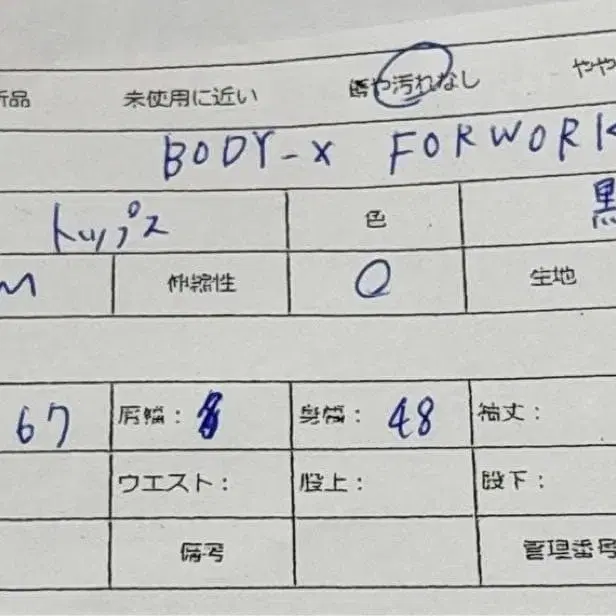 新品 未使用に近い 傷や汚れなし やや
BODY-X FORWORK
トップス 色 黒
M 伸縮性 ○ 生地
67 肩幅: 身幅: 48 袖丈:
ウエスト: 股上: 股下:
備考 管理番号